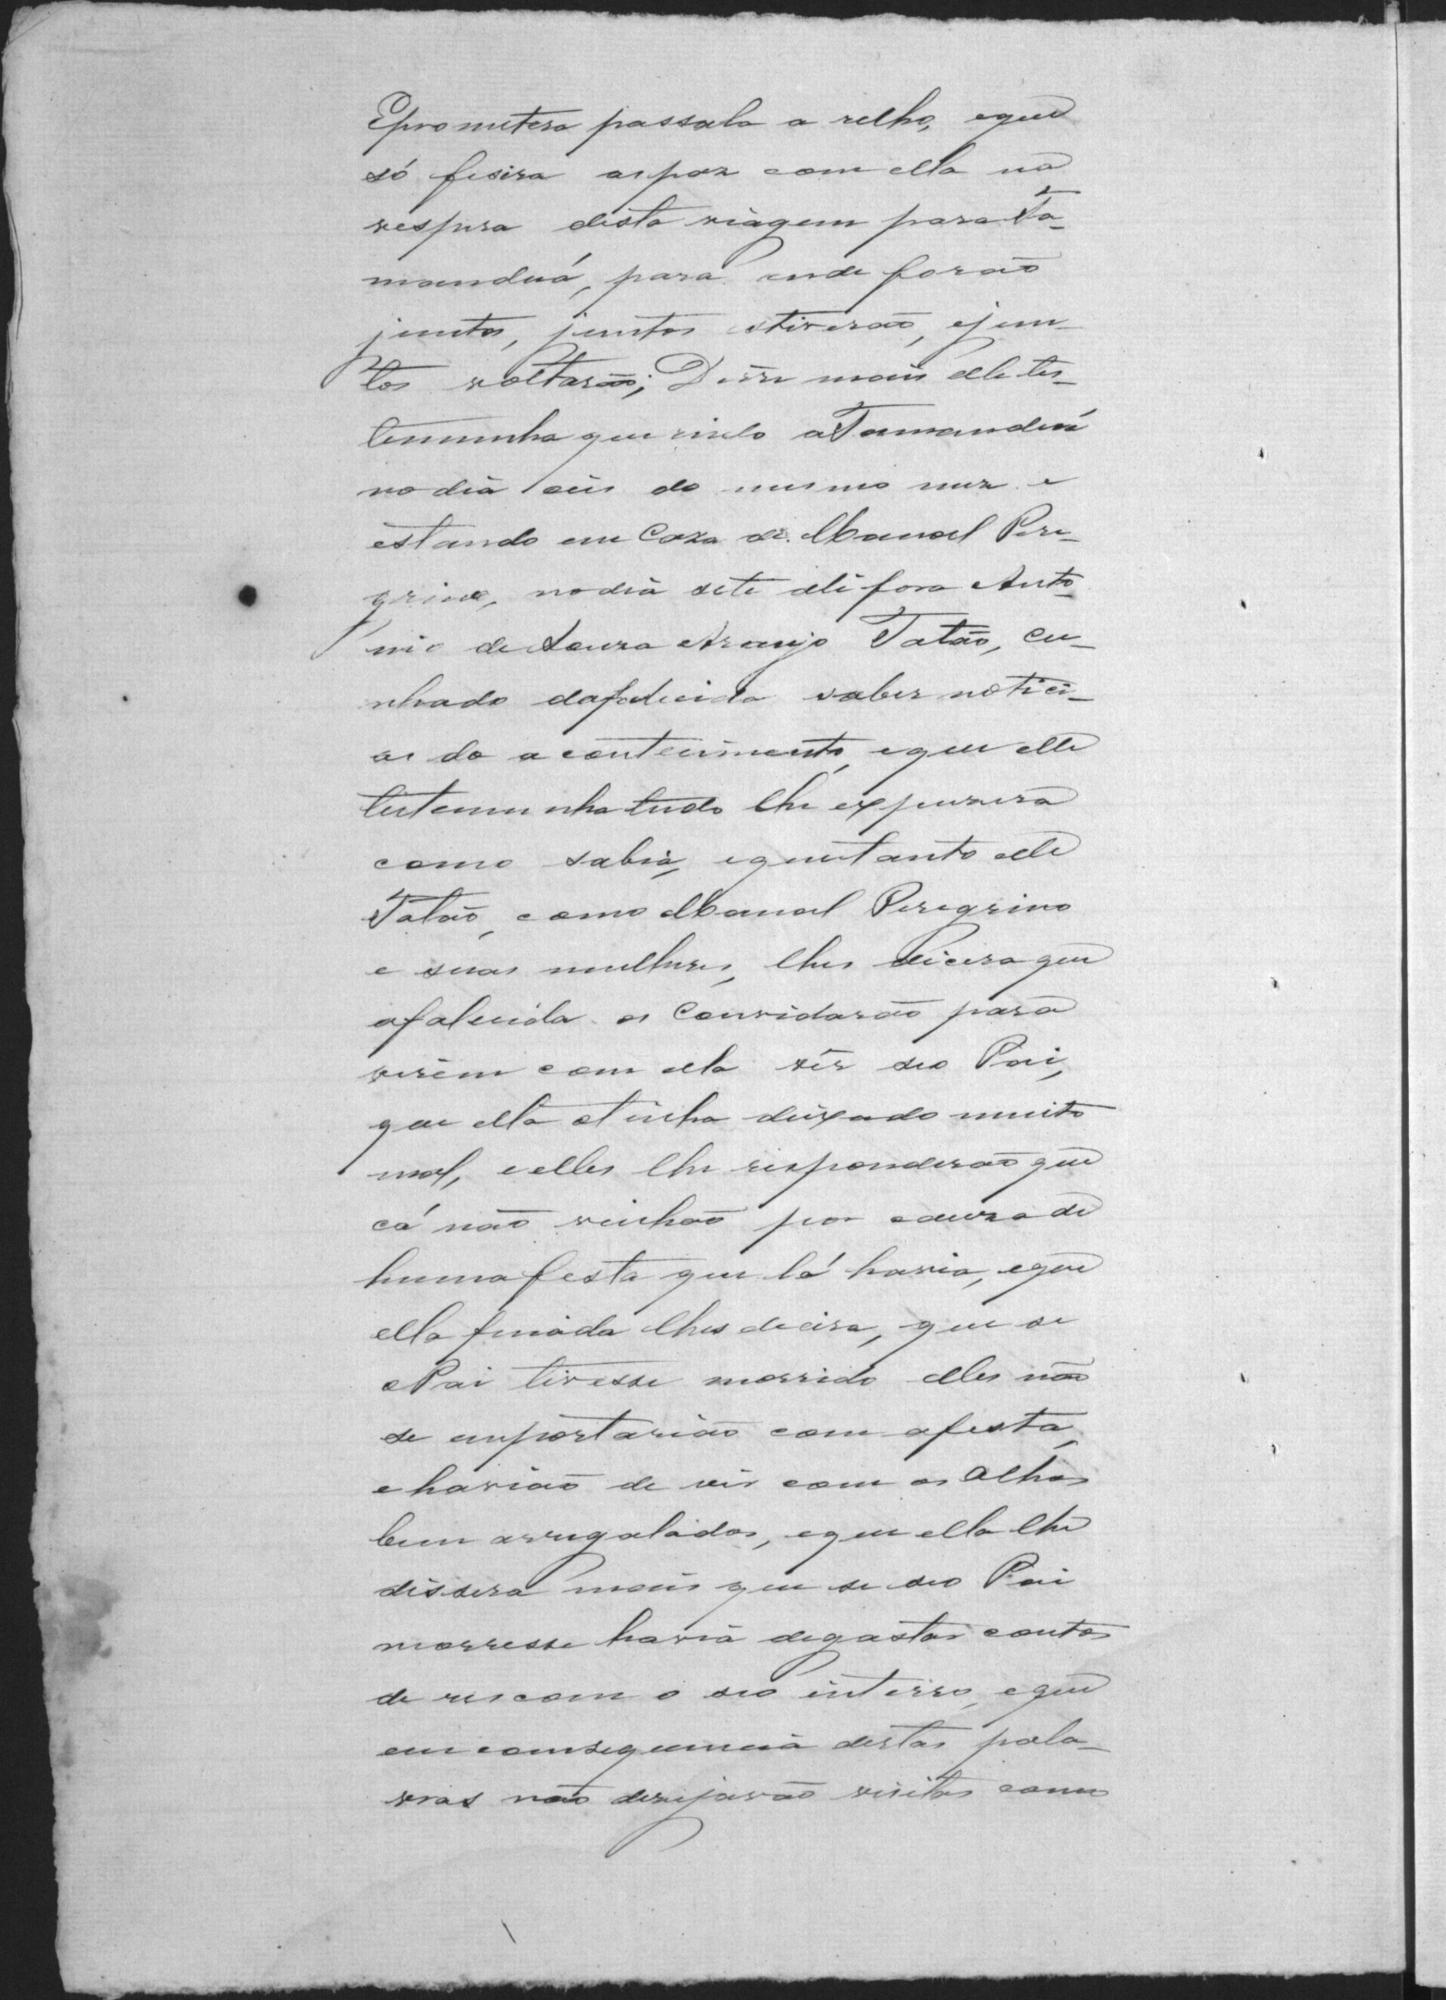 Eprometera passala a relho, eque
só fesira as paz com ella na
vespera desta viagem para Ta-
manduá, para onde forão
juntos, juntos stiverão, ejun-
tos voltarão; Disse mais elle tes-
temunha que indo a Tamanduá
no dia seis do mesmo mez e
estando em Caza de Manoel Pere-
grino, no dia sete ali fora Anto
nio de Souza Araujo Tatão, cu-
nhado dafalecida saber notici-
as do acontecimento, eque elle
testemunha tudo lhe expuzera
como sabia, eque tanto elle
Tatão, como Manoel Peregrino
e suas mulheres, lhes dicera que
afalecida os Convidarão para
virem com ella vêr seo Pai,
que ella otinha deixado muito
mal, eelles lhe responderão que
cá não vinhão por cauza de
huma festa que lá havia, eque
ella finada lhes dicera, que se
oPai tivesse morrido elles não
se emportarião com afesta,
ehavião de vir com os Olhos
bem arregalados, eque ella lhe
dissera mais que se seo Pai
morresse havia degastar contos
de reis com o seo interro, eque
em consequencia destas pala-
vras não desejavão visitas como